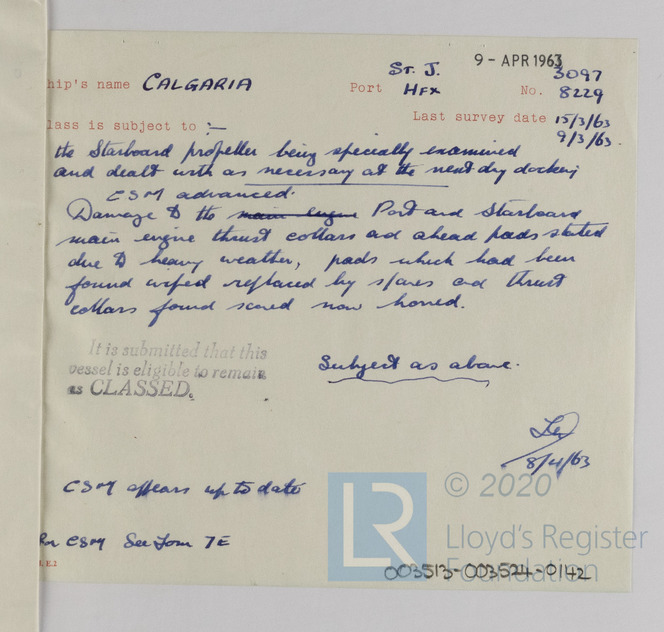 9 - APR 1963
hip's name CALGARIA Port ST. J. HFX No. 3097 8229
lass is subject to :- Last survey date 15/3/63 9/3/63.
the Starboard propeller being specially examined
and dealt with as necessary at the next dry docking
CSM advanced.
Damage to the main engine Port and Starboard
main engine thrust collars and ahead pads stated
due to heavy weather, pads which had been
found wiped replaced by spares and thrust
collars found scored now honed.
It is submitted that this
vessel is eligible to remain
as CLASSED.
Subject as above.
8/4/63
CSM appears up to date
For CSM See Form 7E
© 2020
LR
Lloyd's Register
Foundation
003513-003524-0142